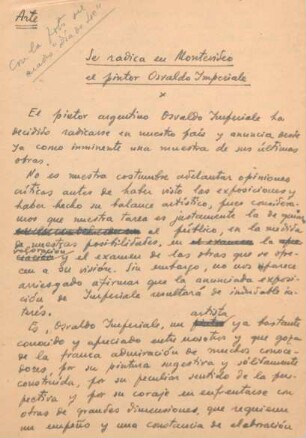 Arte
Con la foto del
cuadro "día de sol"
Se radica en Montevideo
el pintor Osvaldo Imperiale
x
El pintor argentino Osvaldo Imperiale ha
decidido radicarse en nuestro país y anuncia desde
ya como inminente una muestra de sus últimas
obras.
No es nuestra costumbre adelantar opiniones
críticas antes de haber visto las exposiciones y
haber hecho su balance artístico, pues considera-
mos que nuestra tarea es justamente la de guiar
al público, en la medida
de nuestras posibilidades, en el examen la apre-
valoración y el examen de las obras que se ofre-
cen a su visión. Sin embargo, no nos parece
arriesgado afirmar que la anunciada exposi-
ción de Imperiale resultará de indudable in-
terés.
Es, Osvaldo Imperiale, un artista ya bastante
conocido y apreciado entre nosotros y que goza
de la franca admiración de muchos conoce-
dores, por su pintura sugestiva y sólidamente
construida, por su peculiar sentido de la pers-
pectiva y por su coraje en enfrentarse con
obras de grandes dimensiones, que requieren
un empeño y una constancia de elaboración